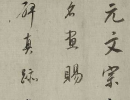 元文宗
名畫賜
辟真跡